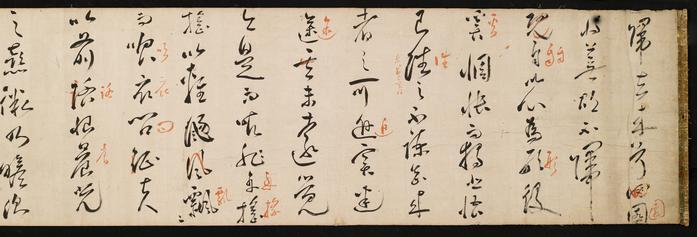 歸去来兮田園
将蕪胡不歸
既自以心為形役
奚惆悵而獨悲悟
已往之不諫知来
者之可追寔迷
途其未遠覺
今是而昨非舟摇
摇以輕颺風飄
而吹衣問征夫
以前路恨晨光
之熹微乃瞻衡